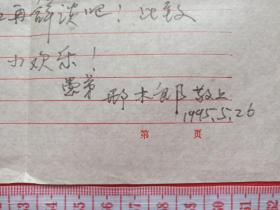 再详谈吧！此致
欢乐！
愚弟
邢木 敬上
1995.5.26
第 页